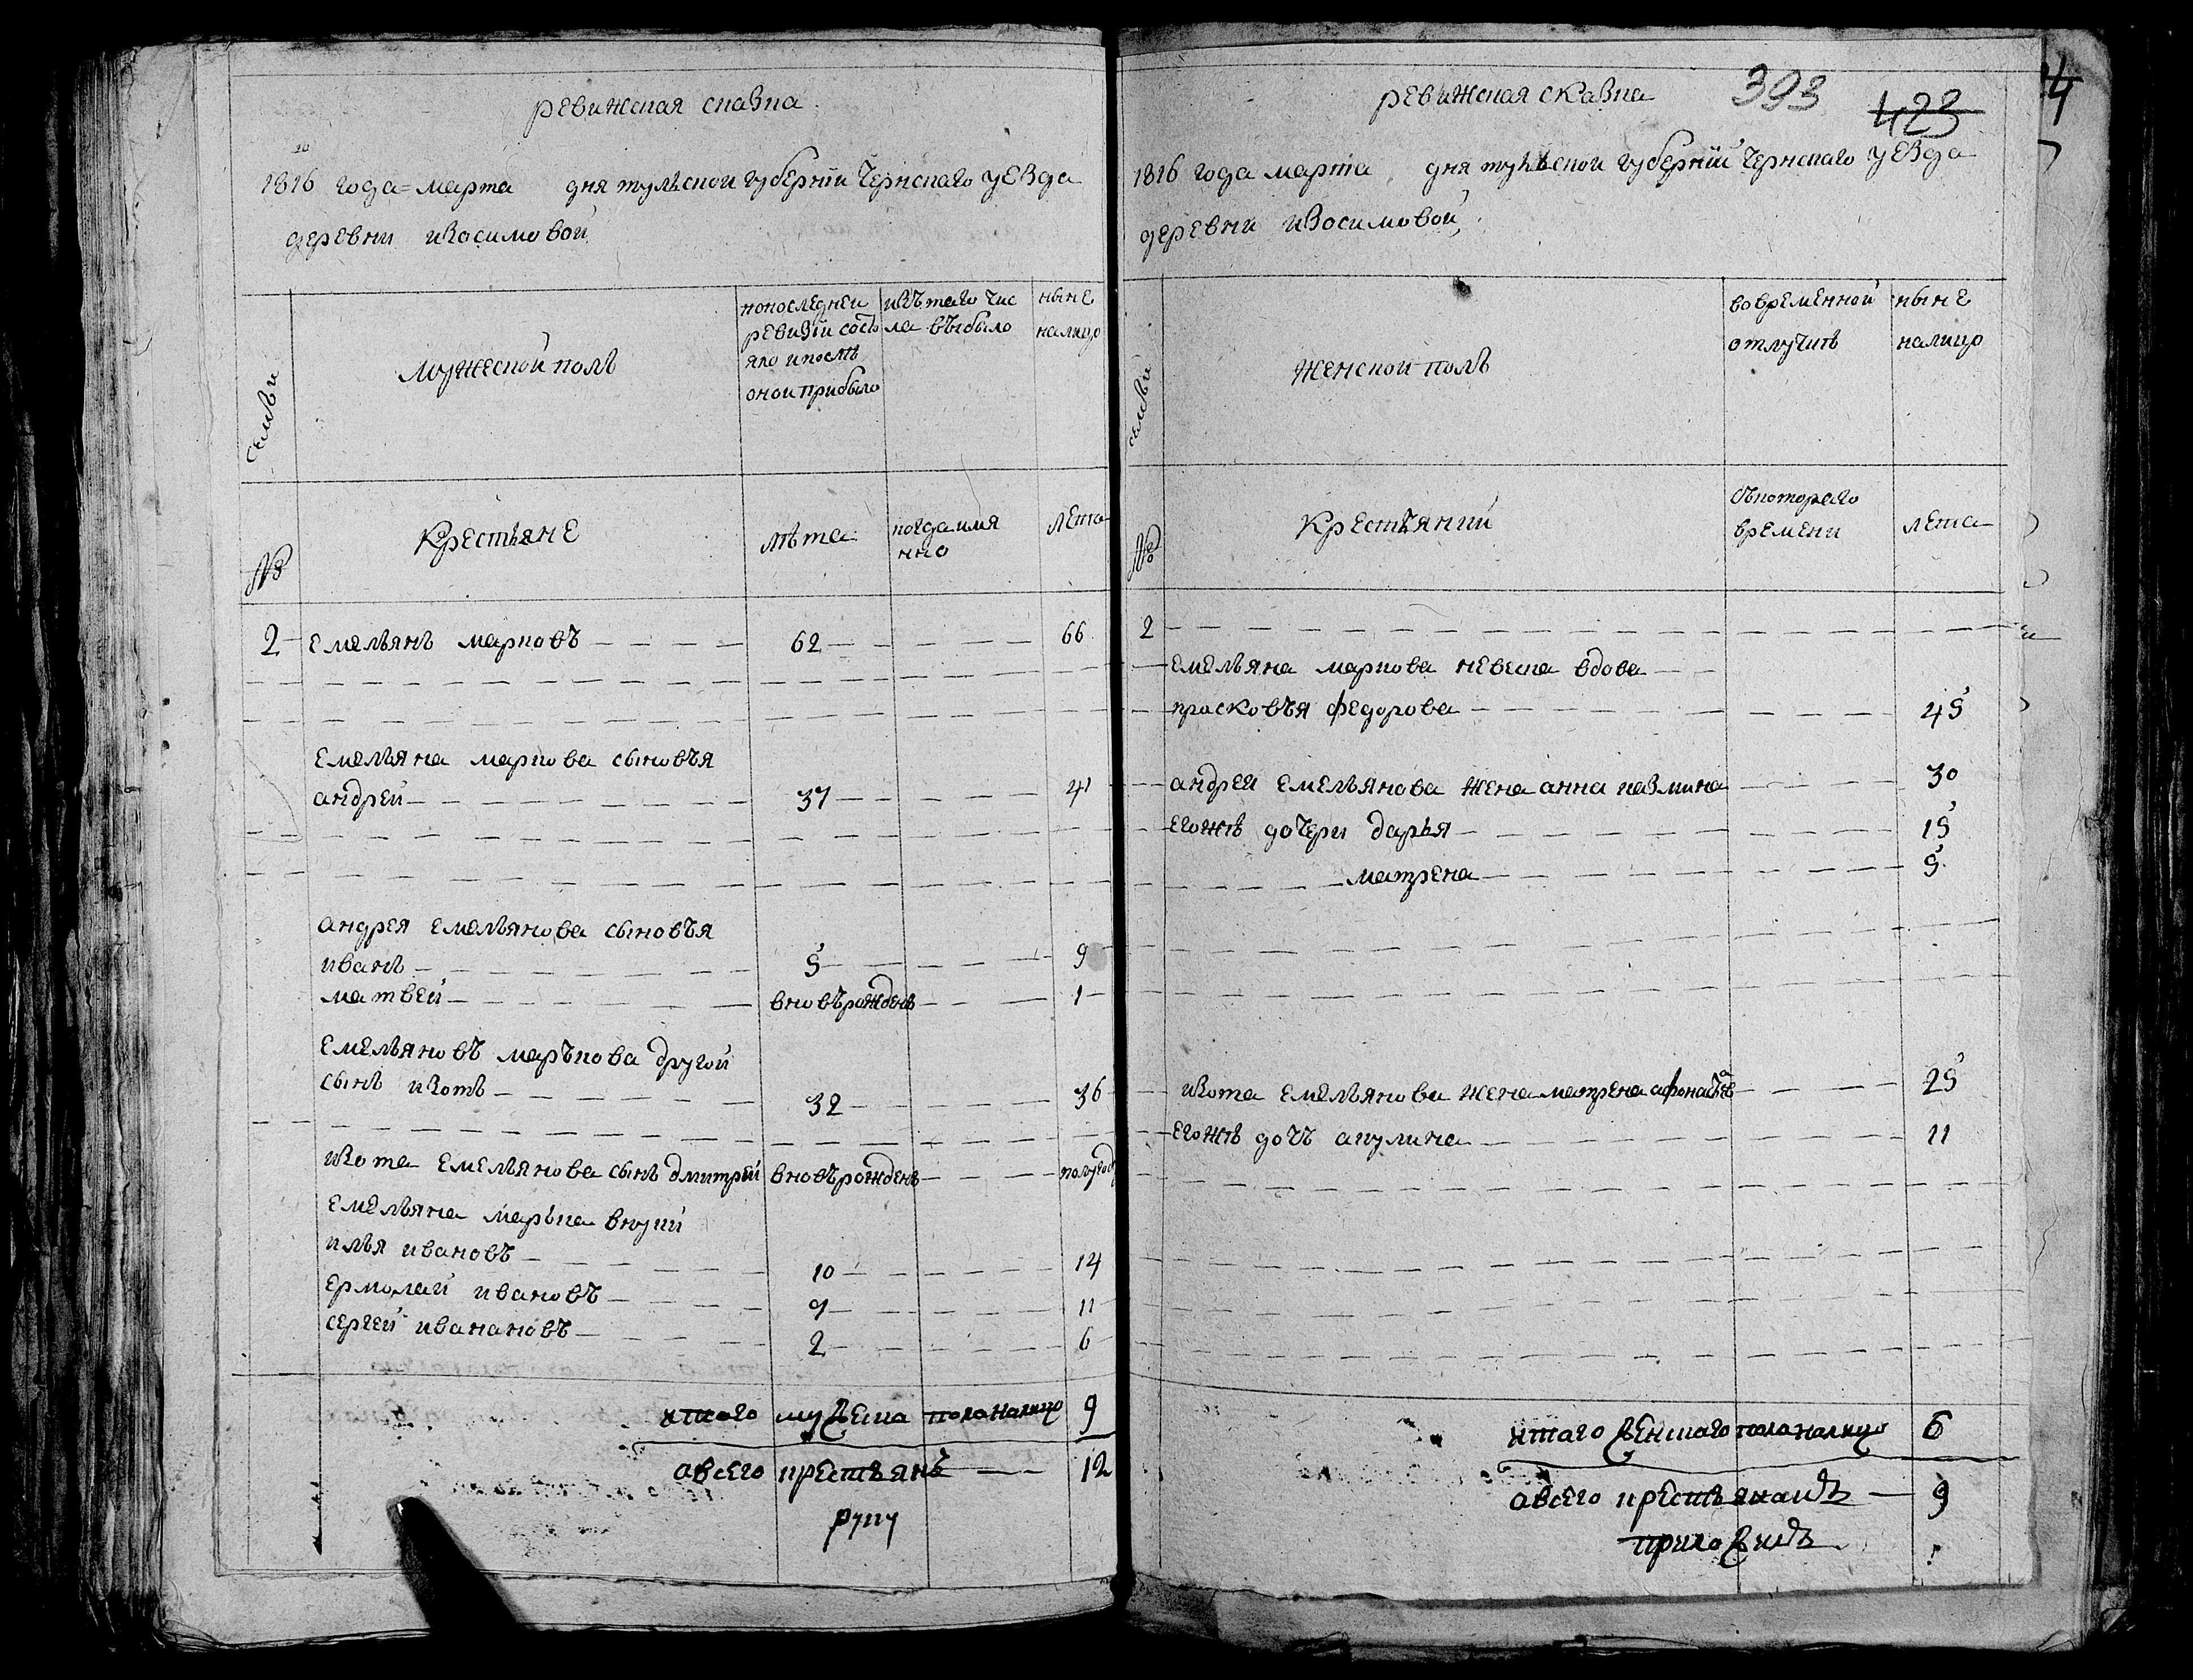 ревижская сказка
1816 года = марта дня тульской губернїи Чернскаго уезда
деревни изосимовой
семьи
мужеской полъ
попоследней ревизїи состояло и послѣ оной прибыло
изътаго числа въыбыло
ныне налицо
№
Крестьяне
лѣта
когдаимянно
лета
2 емельянъ марковъ 62 66
емельяна маркова сыновъя
андрей 37 41
андрея емельянова сыновъя
иванъ 5 9
матвей вновърожденъ 1
емельяновъ маръкова другой
сынъ изотъ 32 36
изота емельянова сынъ дмитрей вновърожденъ полугоду
емельяна маръка внуки
илья ивановъ 10 14
ермолай ивановъ 9 11
сергей иванановъ 2 6
итого мужеска пола налицо 9
авсего крестьянъ 12
руку
ревижская сказка 393 423
1816 года марта дня тульской губернїи чернскаго уезда
деревни изосимовой
семьи
женской полъ
вовременной отлучитъ
ныне налицо
№
Крестъянки
съкотораго времени
лета
2
емельяна маркова невеска вдова
прасковъя федорова 45
андрей емельянова жена анна казмина 30
егожъ дочери дарья 15
матрена 5
изота емельянова жена матрена афонасъева 25
егожъ дочъ акулина 11
итаго женскаго пола налицо 6
авсего крестьянакъ 9
приложилъ